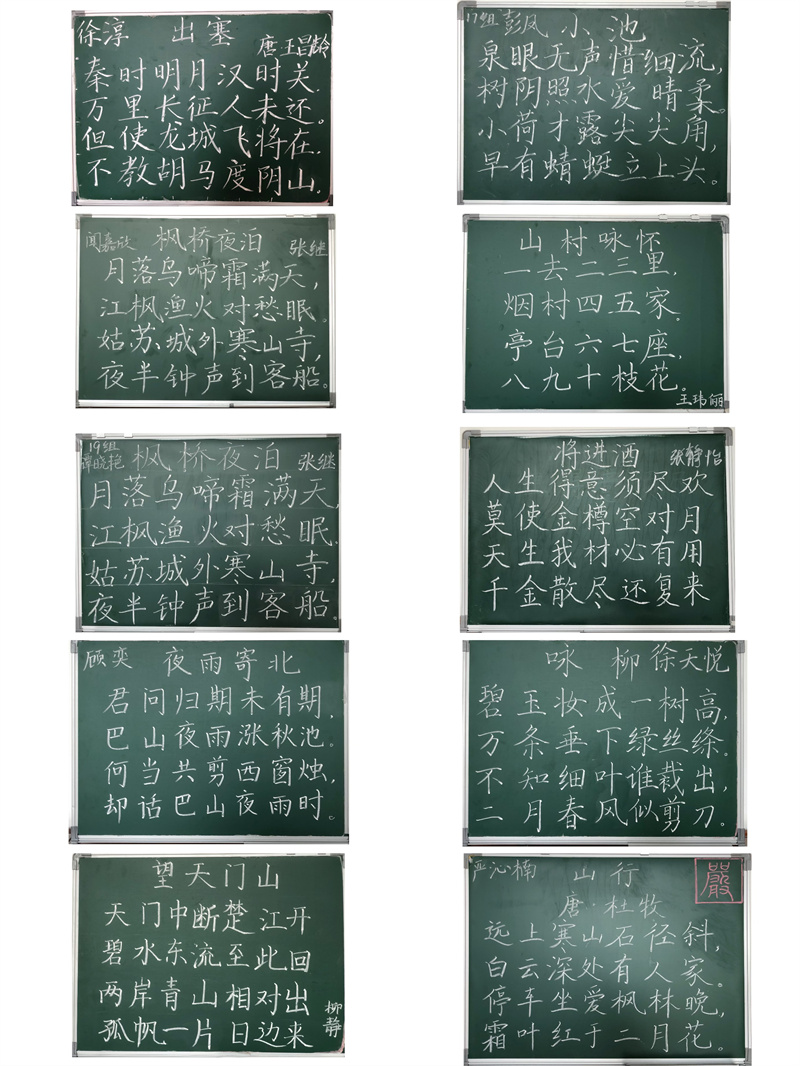 徐淳 出塞
唐 王昌龄
秦时明月汉时关.
万里长征人未还。
但使龙城飞将在.
不教胡马度阴山.
17组 彭凤 小池
泉眼无声惜细流,
树阴照水爱晴柔。
小荷才露尖尖角,
早有蜻蜓立上头。
闻嘉欣 枫桥夜泊 张继
月落乌啼霜满天,
江枫渔火对愁眠。
姑苏城外寒山寺,
夜半钟声到客船。
山村咏怀
一去二三里,
烟村四五家.
亭台六七座,
八九十枝花。
王玮俪
19组
谭晓艳 枫桥夜泊 张继
月落乌啼霜满天,
江枫渔火对愁眠.
姑苏城外寒山寺,
夜半钟声到客船。
将进酒 张静怡
人生得意须尽欢
莫使金樽空对月
天生我材必有用
千金散尽还复来
顾奕 夜雨寄北
君问归期未有期,
巴山夜雨涨秋池。
何当共剪西窗烛,
却话巴山夜雨时。
咏柳 徐天悦
碧玉妆成一树高,
万条垂下绿丝绦。
不知细叶谁裁出,
二月春风似剪刀。
望天门山
天门中断楚江开
碧水东流至此回
两岸青山相对出
孤帆一片日边来
柳静
严沁楠 山行
嚴
唐·杜牧
远上寒山石径斜,
白云深处有人家。
停车坐爱枫林晚,
霜叶红于二月花。